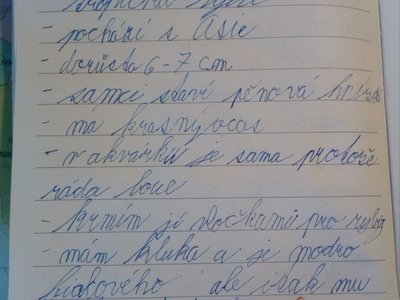 - pochází z Asie
- dorůsta 6-7 cm
- samci staví pěnová
- ma krasný ocas
- v akvárku je sama protože
ráda bouе
- krmím jí vločkami pro ryby
- mám kluka a je modro
ale isak mu